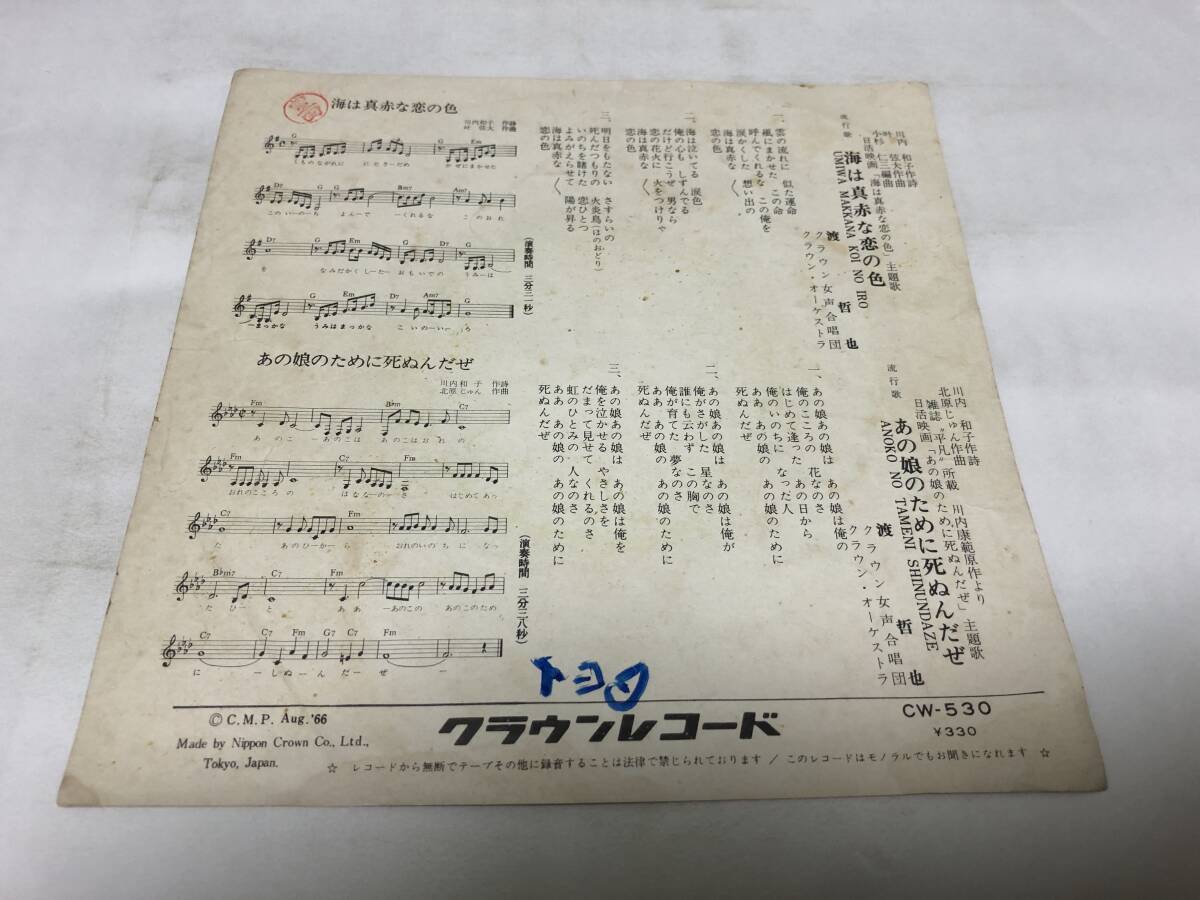 海は真赤な恋の色
川内和子 作詩
叶 弦大 作曲
G Em Am7 G
くものながれに にたさーだめ かぜにまかせた
D7 G D7 Bm7 Am7
このいーのーち よんーで くれるな このおれ
D7 G Em G D7 G
を なみだかくしーたー おもいでの うみーは
G Em D7 Am7 G
ーまっかな うみはまっかな こいのーいー ろ
(演奏時間 三分二一秒)
あの娘のために死ぬんだぜ
川内和子 作詩
北原じゅん 作曲
Fm B♭m Fm
あのこ ーあのこは あのこはおれの
Fm C7 Fm
おれのこころの はななーのーさ はじめてあっ
C7 Fm
た あのひーかーら おれのいのちに なっ
B♭m7 C7 Fm
たひーと ああ ーあのこの あのこのため
C7 C7 Fm G7 C7 Fm
に ーしぬーんーだーぜ ー
(演奏時間 三分三八秒)
川内 和子作詩
叶 弦大作曲
小杉 仁三編曲
日活映画「海は真赤な恋の色」主題歌
流行歌 海は真赤な恋の色
UMIWA MAKKANA KOI NO IRO
渡 哲也
クラウン女声合唱団
クラウン・オーケストラ
一、雲の流れに 似た運命
風にまかせた この命
呼んでくれるな この俺を
涙かくした 想い出の
海は真赤な
恋の色
二、海は泣いてる 涙色
俺の心も しずんでる
だけど行こうぜ 男なら
恋の花火に 火をつけりゃ
海は真赤な
恋の色
三、明日をもたない さすらいの
死んだつもりの 火炎鳥(ほのおどり)
いのちを賭けた 恋ひとつ
よみがえらせて 陽が昇る
海は真赤な
恋の色
川内 和子作詩
北原じゅん作曲
雑誌“平凡”所載 川内康範原作より
日活映画「あの娘のために死ぬんだぜ」主題歌
流行歌 あの娘のために死ぬんだぜ
ANOKO NO TAMENI SHINUNDAZE
渡 哲也
クラウン女声合唱団
クラウン・オーケストラ
一、あの娘あの娘は あの娘は俺の
俺のこころの 花なのさ
はじめて逢った あの日から
俺のいのちに なった人
ああ あの娘の あの娘のために
死ぬんだぜ
二、あの娘あの娘は あの娘は俺が
俺がさがした 星なのさ
誰にも云わず この胸で
俺が育てた 夢なのさ
ああ あの娘の あの娘のために
死ぬんだぜ
三、あの娘あの娘は あの娘は俺を
俺を泣かせる やさしさを
だまって見せて くれるのさ
虹のひとみの 人なのさ
ああ あの娘の あの娘のために
死ぬんだぜ
© C.M.P. Aug.'66
Made by Nippon Crown Co., Ltd.,
Tokyo, Japan.
クラウンレコード
CW-530
¥330
☆ レコードから無断でテープその他に録音することは法律で禁じられております / このレコードはモノラルでもお聞きになれます ☆